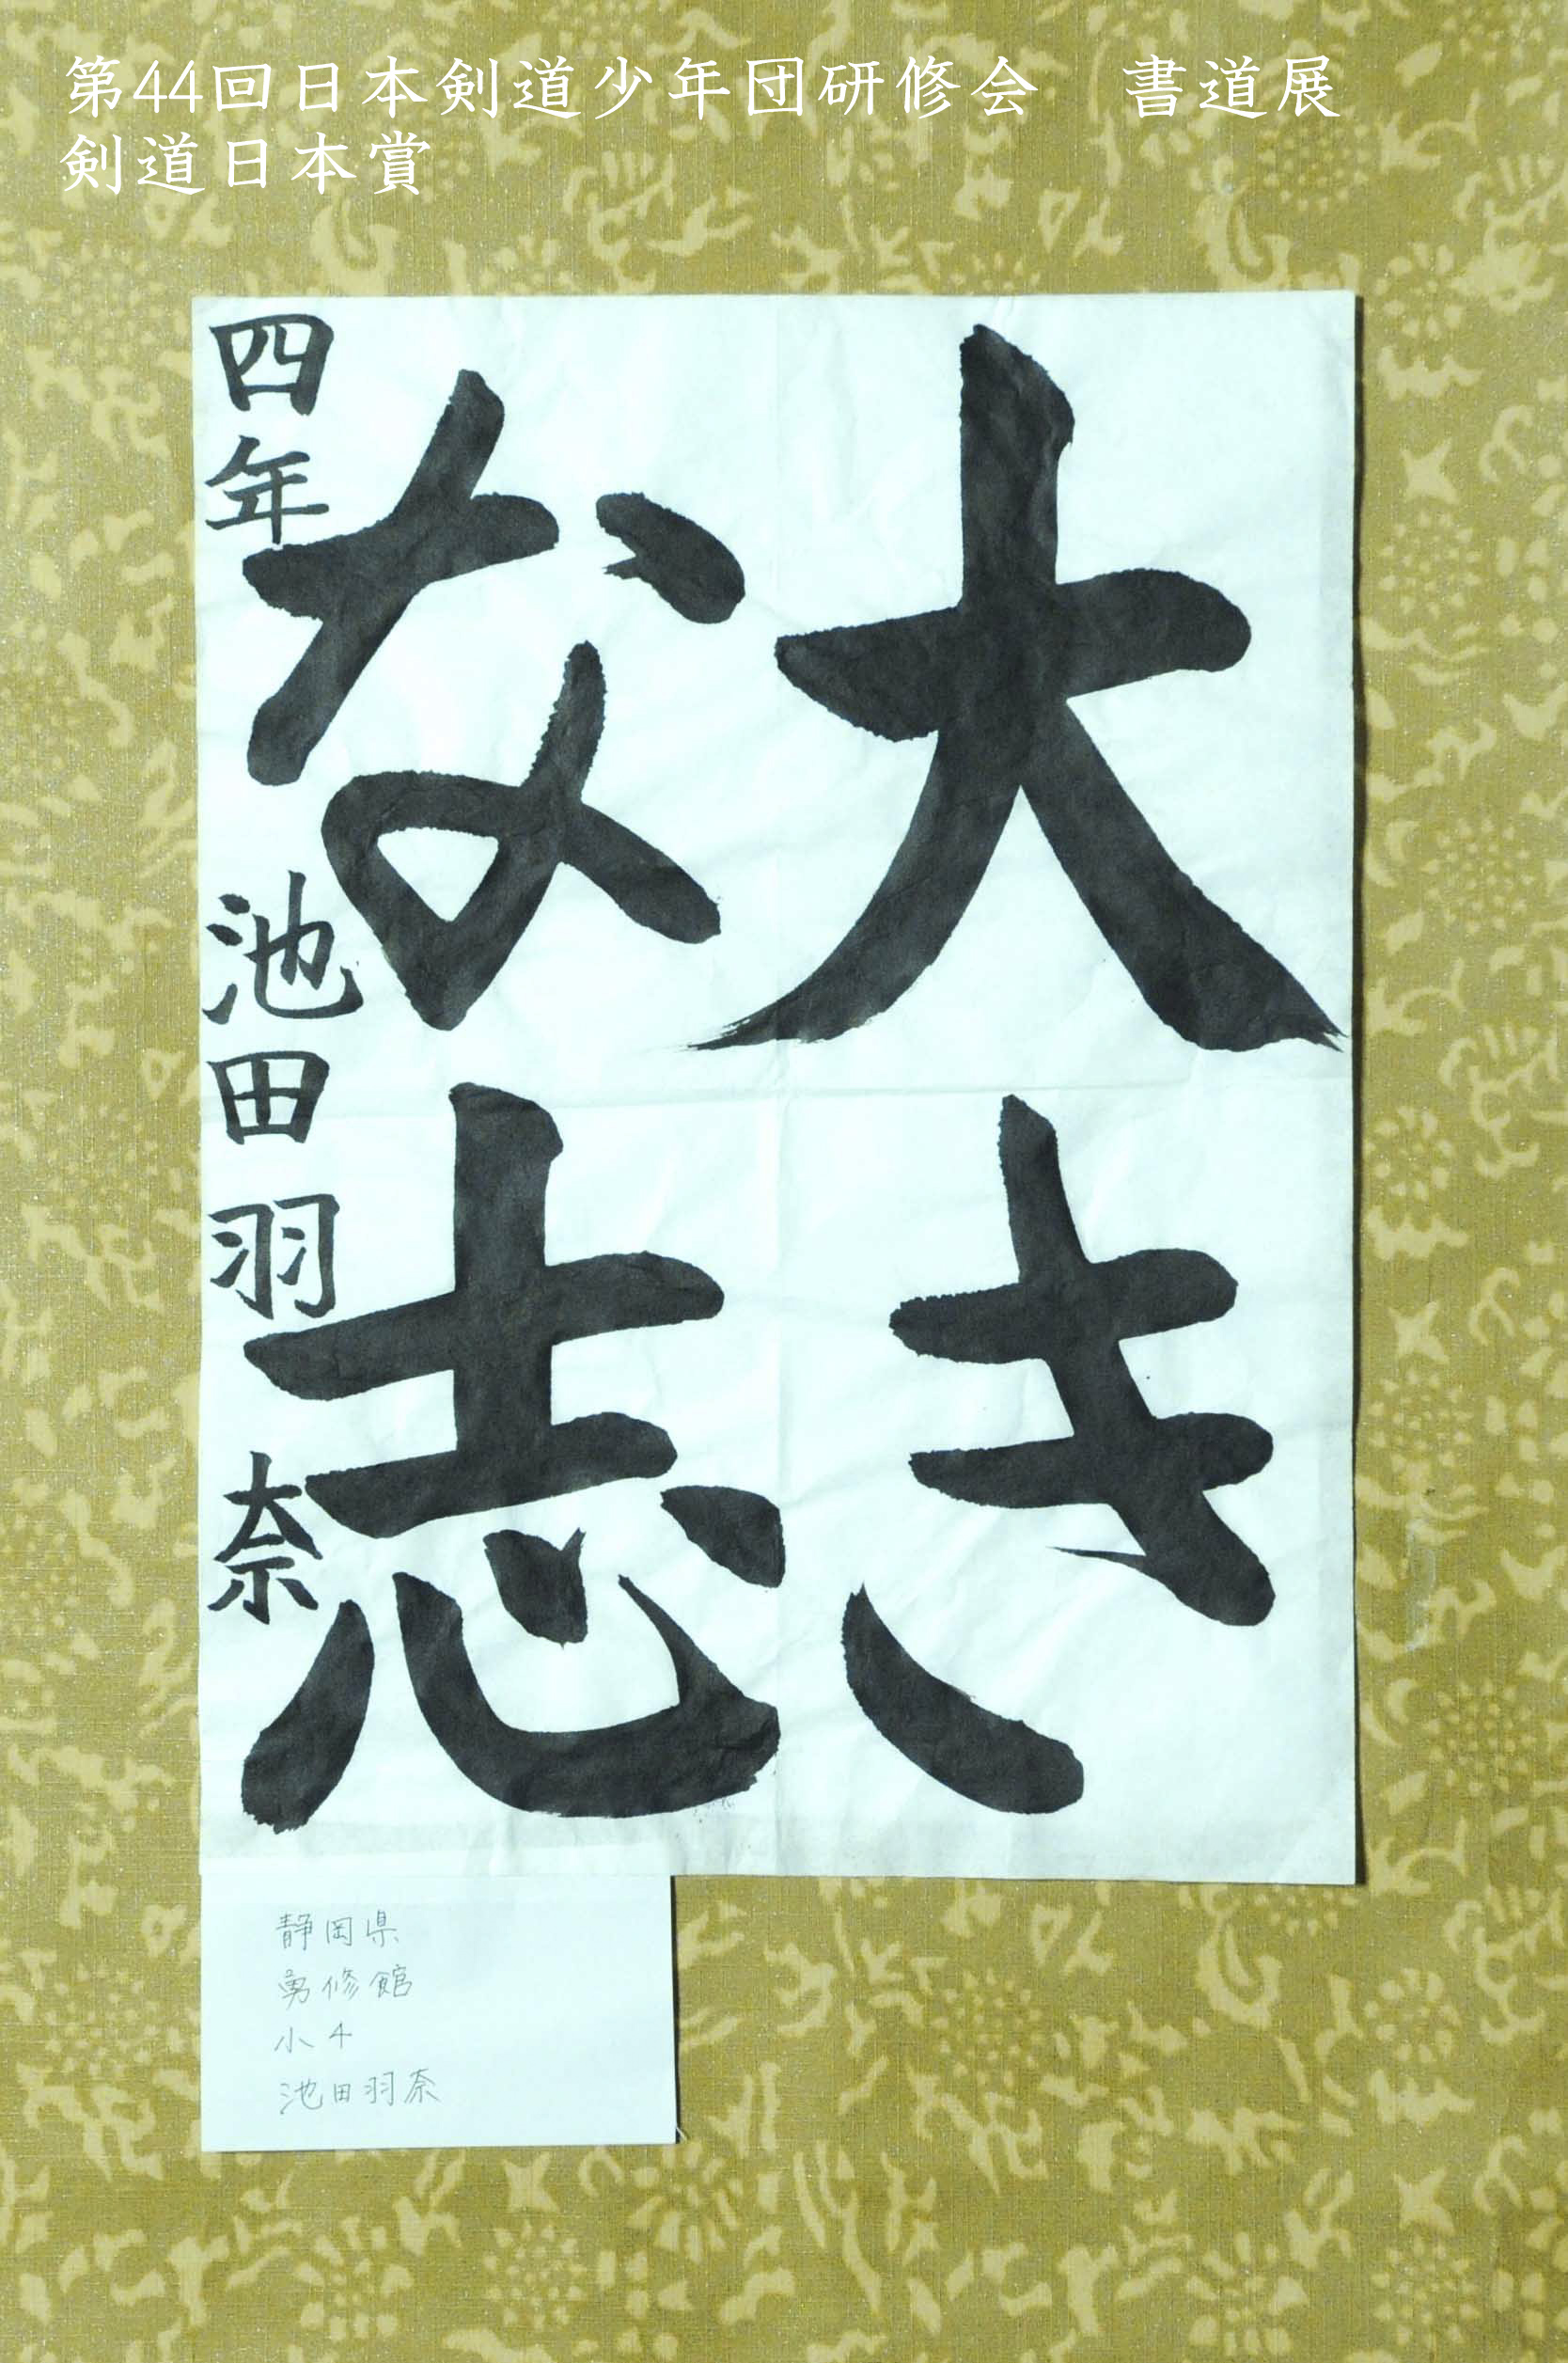 第44回日本剣道少年団研修会　書道展
剣道日本賞
大き
な志
四年　池田羽奈
静岡県
勇修館
小4
池田羽奈